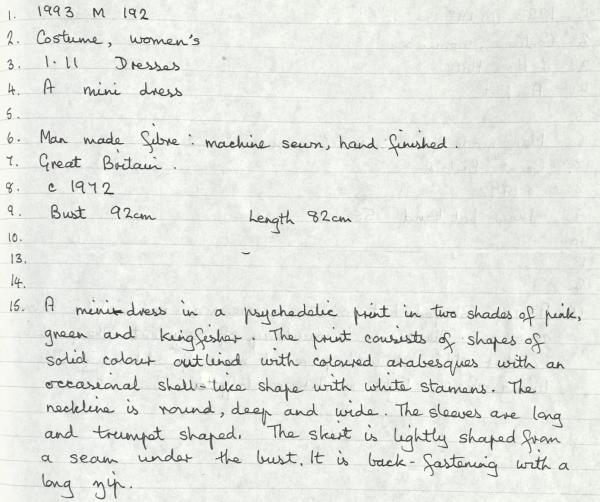 1. 1993 M 192
2. Costume, women's
3. 1.11 Dresses
4. A mini dress
5.
6. Man made fibre : machine sewn, hand finished.
7. Great Britain.
8. c 1972
9. Bust 92cm Length 82cm
10.
13. –
14.
15. A mini-dress in a psychedelic print in two shades of pink,
green and kingfisher. The print consists of shapes of
solid colour outlined with coloured arabesques with an
occasional shell-like shape with white stamens. The
neckline is round, deep and wide. The sleeves are long
and trumpet shaped. The skirt is lightly shaped from
a seam under the bust. It is back-fastening with a
long zip.